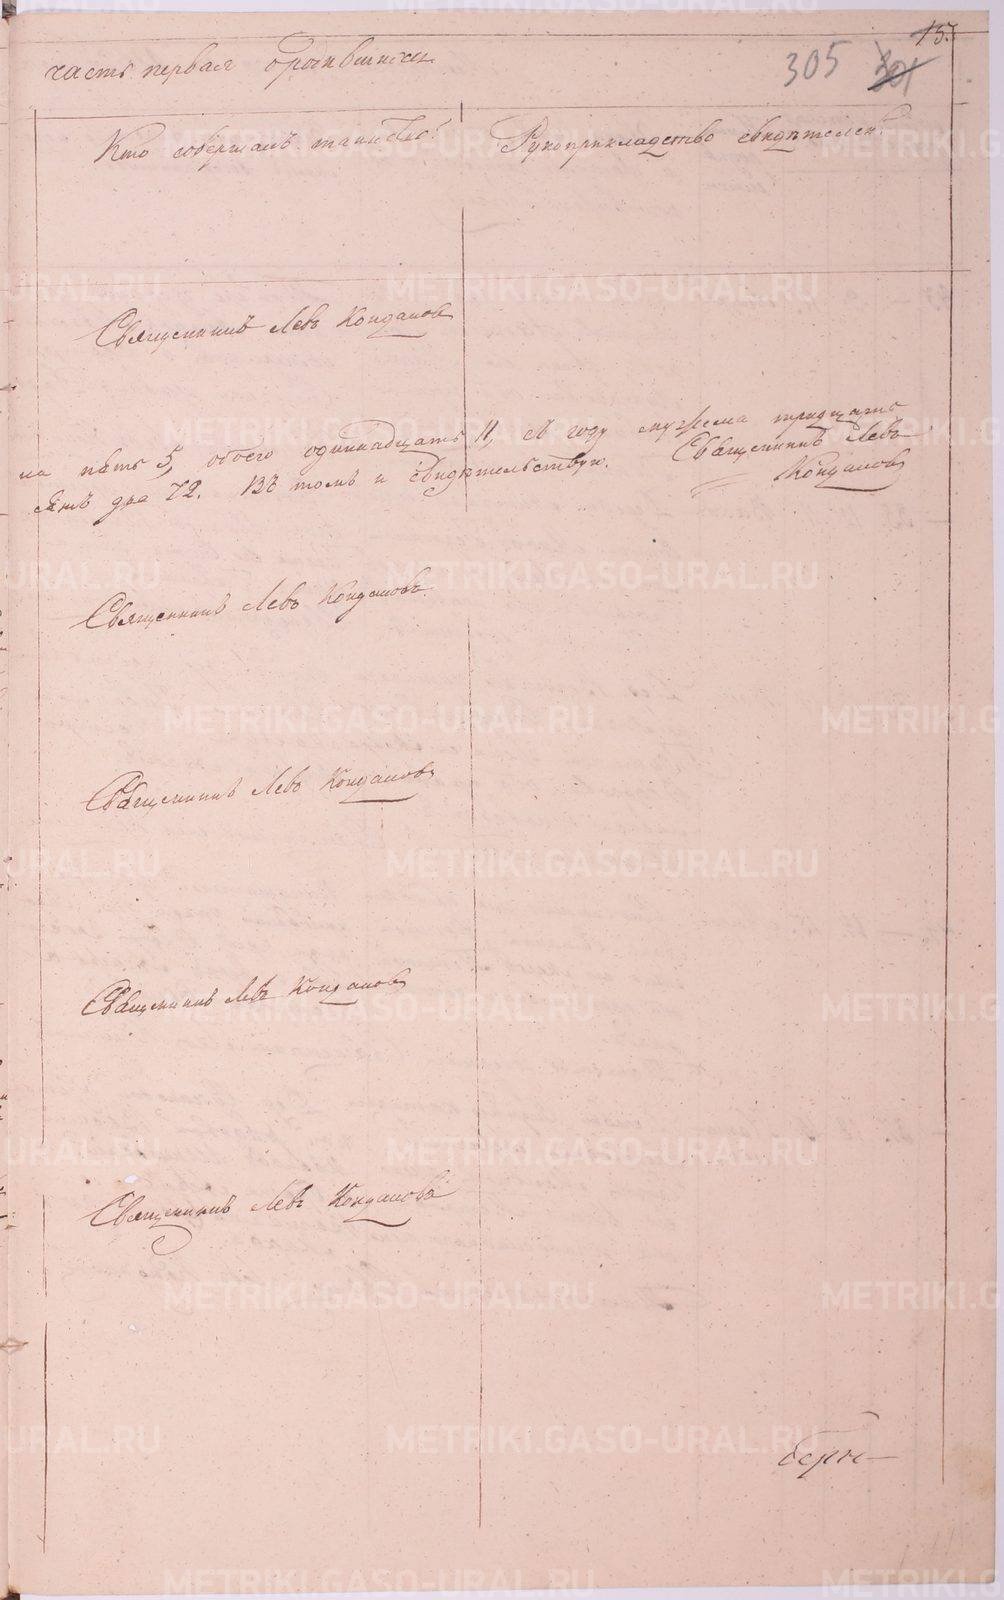 15.
часть первая о родившихся
305
301
Кто совершалъ таинство?
Рукоприкладство свидѣтелей?
Священникъ Левъ Кондаковъ
на пять 5, обоего одиннадцать 11, съ году мужеска тридцать
два 72. Въ томъ и свидѣтельствую. Священникъ Левъ
Кондаковъ
Священникъ Левъ Кондаковъ.
Священникъ Левъ Кондаковъ
Священникъ Левъ Кондаковъ
Священникъ Левъ Кондаковъ
METRIKI.GASO-URAL.RU